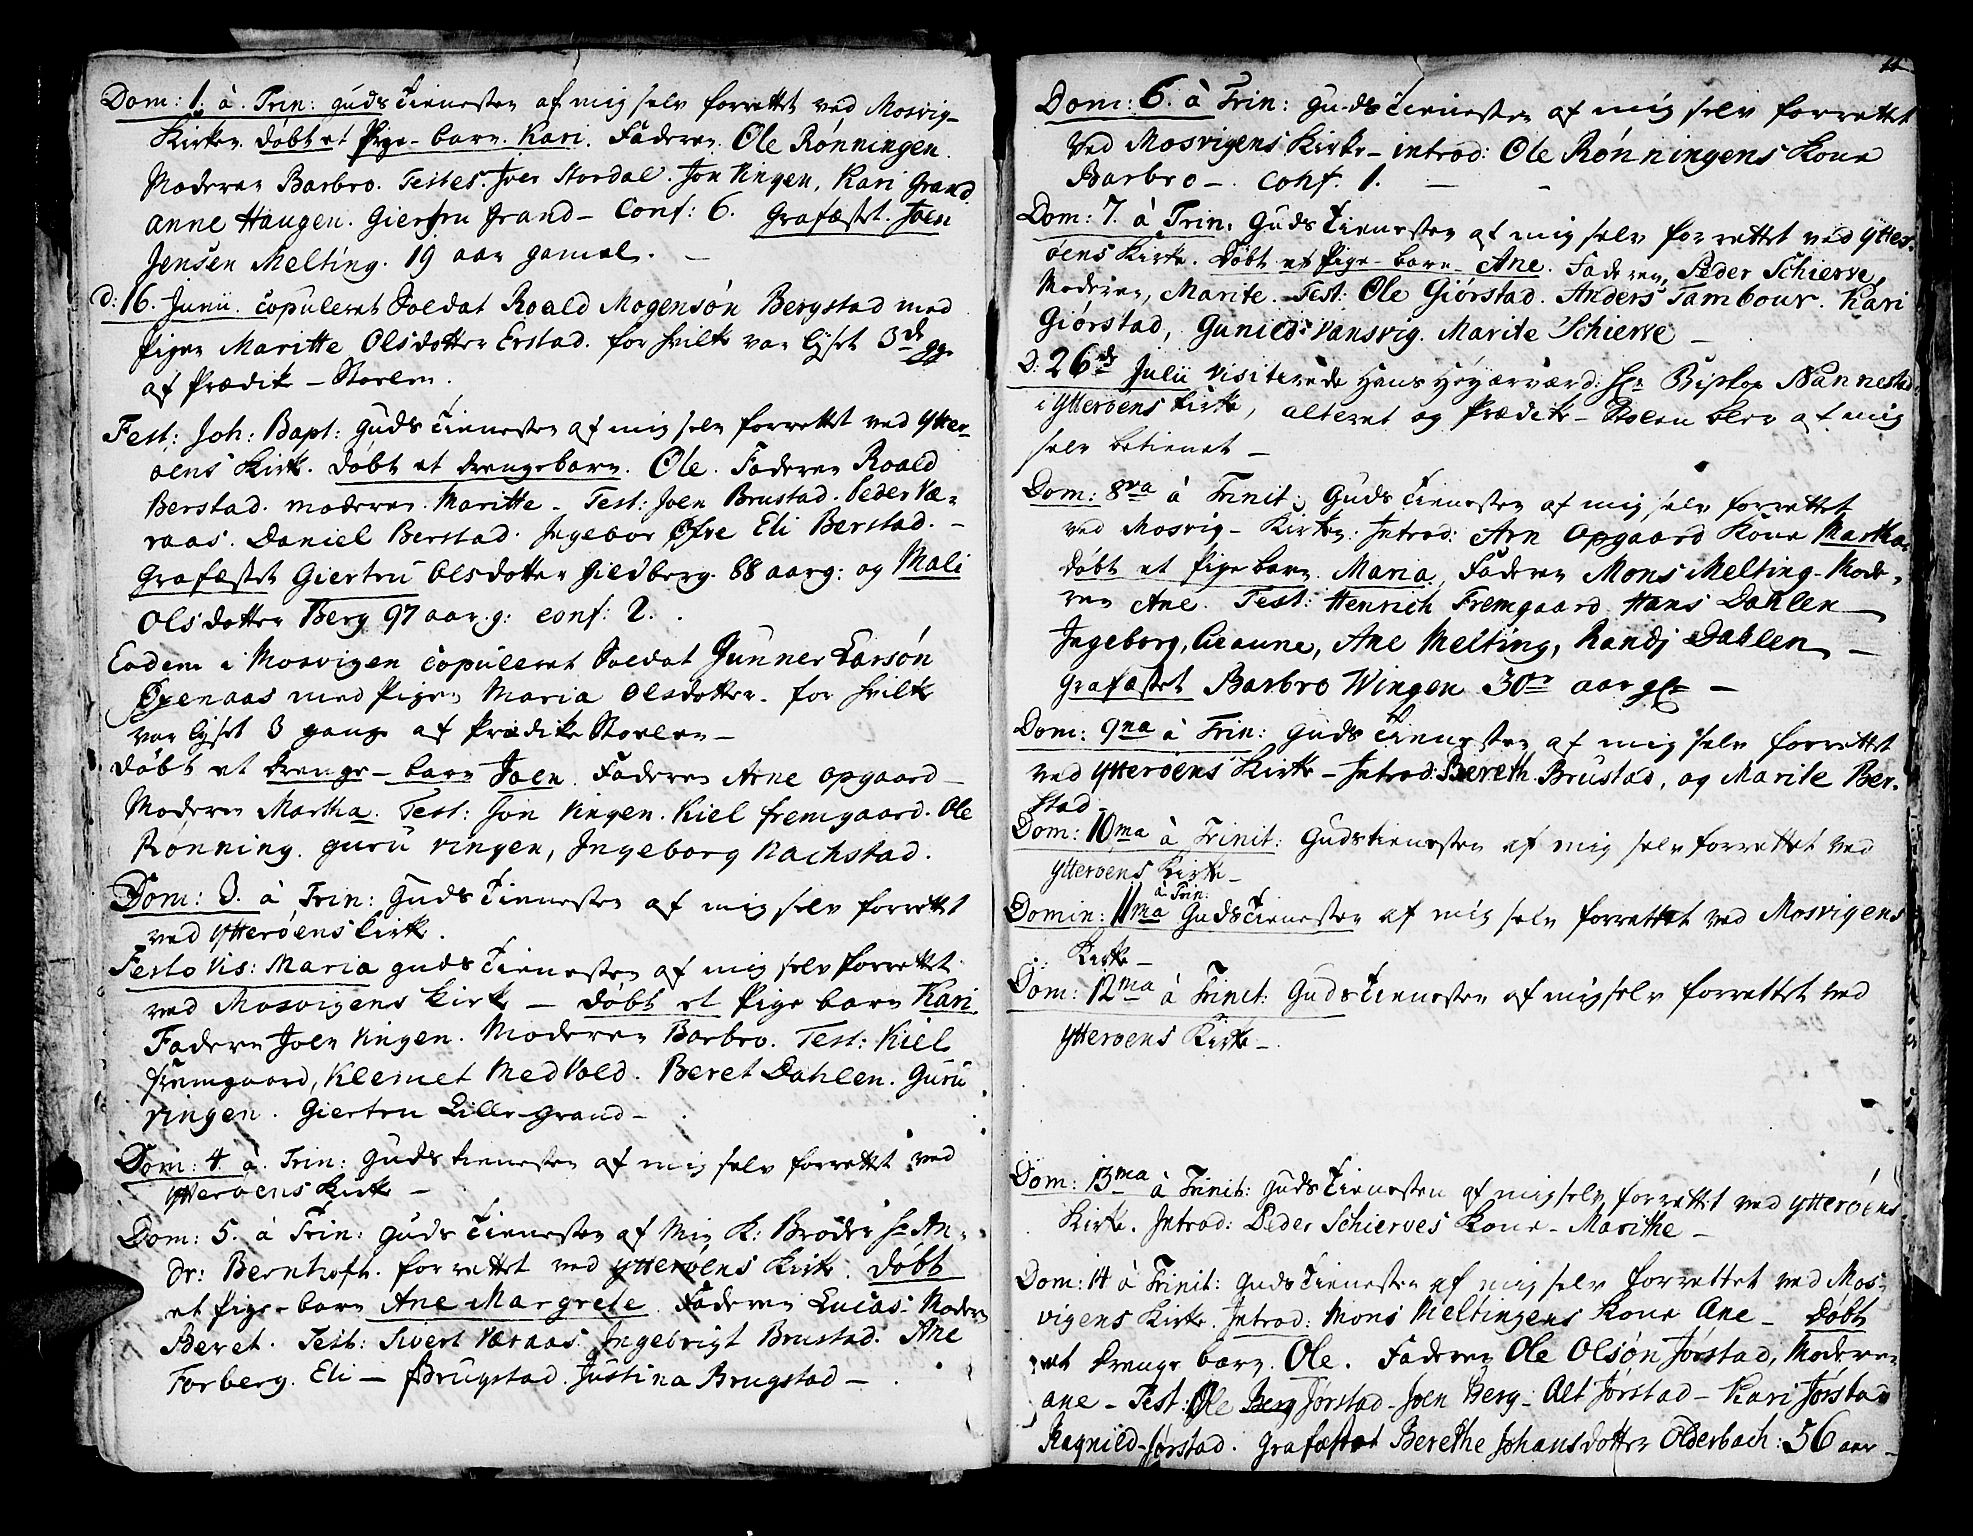 Dom: 1. à. Trin: Guds Tienesten af mig selv forrettet ved Mosvig-
Kirken. døbt et Pige-barn. Kari. Faderen Ole Rønningen.
Moderen Barbro. Testes. Iver Stordal. Jon Vingen, Kari Grand
Anne Haugen. Giertru Grand – Conf: 6. Grafæstet. Joen
Jensen Melting. 19 aar gamal. –
d: 16. Junii. Copuleret Soldat Roald Mogensøn Bergstad med
Pigen Maritte Olsdotter Erstad. for hvilke var lyset 3de gg:
af Prædike-Stoelen.
Fest: Joh: Bapt: Guds Tienesten af mig selv forrettet ved Ytter-
øens Kirke. døbt et drengebarn. Ole. Faderen Roald
Berstad. moderen Maritte – Test: Joen Brustad. Peder Væ-
raas. Daniel Berstad. Ingebor Øfre Eli Berstad. –
Grafæstet Giertru Olsdotter Hildberg. 88 aar g: og Mali
Olsdotter Berg 97 aar. g: Conf: 2.
Eodem i Mosvigen Copuleret Soldat Gunner Larsøn
Øxenaas med Pigen Maria Olsdotter. for hvilke
var lyset 3 gange af Prædike Stoelen –
døbt et drenge-barn Joen. Faderen Arne Opgaard –
Moderen Martha. Test: Jon Vingen. Kiel fremgaard. Ole
Rønning. Guru vingen, Ingeborg Rachstad.
Dom: 3. à Trin: Guds Tienesten af mig selv forrettet
ved Ytterøens Kirke.
Festo Vis: Maria Guds Tienesten af mig selv forrettet
ved Mosvigens Kirke – døbt et Pige barn Kari
Faderen Joen Vingen. Moderen Barbro. Test: Kiel
fremgaard, Klemet Medvold. Beret Dahlen. Guru
vingen. Giertru Lille-grand –
Dom: 4. à. Trin: Guds tienesten af mig selv forrettet ved
Ytterøens Kirke –
Dom: 5. à Trin: Guds Tienesten af Min K: Broder Hr An-
dr: Bernhoft. forrettet ved Ytterøens Kirke. døbt
et Pige-barn Ane Margrete. Faderen Lucas. Moderen
Beret. Test: Sivert Væraas. Ingebrigt Brustad. Ane
Forberg. Eli – Brugstad. Justina Brugstad –
Dom: 6. à Trin: Guds Tienesten af mig selv forrettet
ved Mosvigens Kirke – introd: Ole Rønningens Kone
Barbro –. Conf. 1. –
Dom: 7. à Trin: Guds Tienesten af mig selv forrettet ved Ytter-
øens Kirke. Døbt et Pige-barn Ane. Faderen, Peder Schierve,
Moderen, Marite. Test: Ole Giørstad. Anders Tambour. Kari
Giørstad, Gunild Vansvig. Marite Schierve –
D: 26de Julii visiterede Hans Høyærværd: Hr Biskop Nannestad
i Ytterøens Kirke, alteret og Prædike-Stolen blev af mig
selv betienet –
Dom: 8va à Trinit: Guds Tienesten af mig selv forrettet
ved Mosvig-Kirken. Introd: Arn Opgaard Kone Martha.
døbt et Pige barn. Maria. Faderen Mons Melting. Mode-
ren Ane. Test: Henrich Fremgaard Hans Dahlen
Ingeborg. Aune, Ane Melting, Randj Dahlen –
Grafæstet Barbro Wingen 30te aar gl: –
Dom: 9na à Trin: Guds Tienesten af mig selv forrettet
ved Ytterøens Kirke – Introd: Bereth Brustad, og Marite Ber-
stad.
Dom: 10ma à Trinit: Gudstienesten af mig selv forrettet ved
Ytterøens Kirke –
Domin: 11ma à Trin: Guds Tienesten af mig selv forrettet ved Mosvigens
Kirke –
Dom: 12ma à Trinit: Guds Tienesten af mig selv forrettet ved
Ytterøens Kirke –
Dom: 13ma à Trinit: Guds Tienesten af mig selv forrettet ved Ytterøens
Kirke. Introd: Peder Schierves Kone – Marithe –
Dom: 14 à Trinit: Guds Tienesten af mig selv forrettet ved Mos-
vigens Kirke. Introd: Mons Meltingens Kone Ane – Døbt
et drenge barn. Ole. Faderen Ole Olsøn Jørstad, Moderen
ane – Test: Ole Berg Jørstad. Joen Berg. Alt Jørstad – Kari Jørstad
Ragnild Jørstad. Grafæstet Berethe Johansdotter Olderbach: 56 aar –